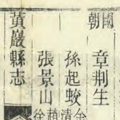 國朝
章荆生
孫起蛟
張景山
黃巖縣志